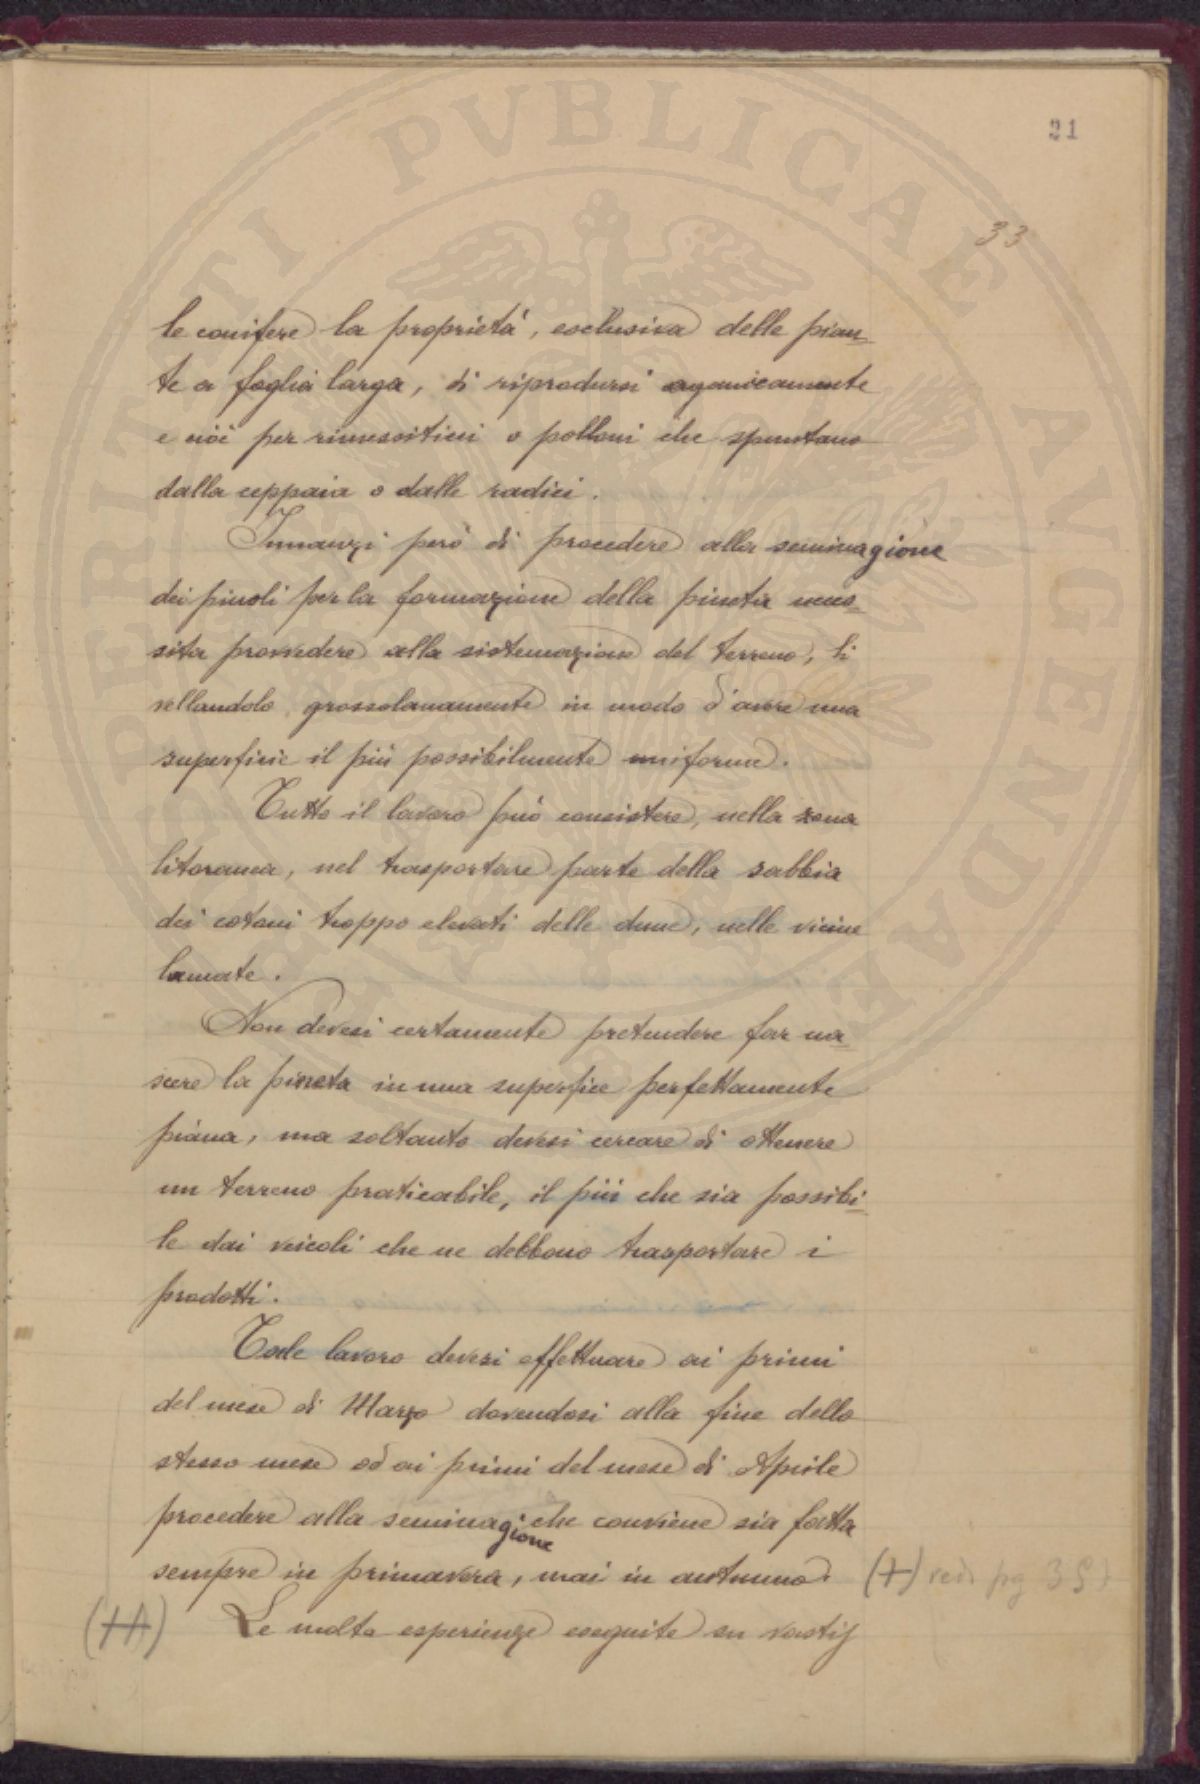 21
33
le conifere la proprietà, esclusiva delle pian
te a foglia larga, di riprodursi agamicamente
e cioè per rimessiticci o polloni che spuntano
dalla ceppaia o dalle radici.
Innanzi però di procedere alla seminagione
dei pinoli per la formazione della pineta neces
sita provvedere alla sistemazione del terreno, li
vellandolo grossolanamente in modo d'avere una
superficie il più possibilmente uniforme.
Tutto il lavoro può consistere, nella zona
litoranea, nel trasportare parte della sabbia
dei cotoni troppo elevati delle dune, nelle vicine
lamate.
Non devesi certamente pretendere far na
scere la pineta in una superfice perfettamente
piana, ma soltanto devesi cercare di ottenere
un terreno praticabile, il più che sia possibi
le dai veicoli che ne debbono trasportare i
prodotti.
Tale lavoro devesi effettuare ai primi
del mese di Marzo dovendosi alla fine dello
stesso mese od ai primi del mese di Aprile
procedere alla seminagione che conviene sia fatta
sempre in primavera, mai in autunno. (+) ved. pg 35)
Le molte esperienze eseguite su vasti
SPERITI PVBLICAE AVGENDAE